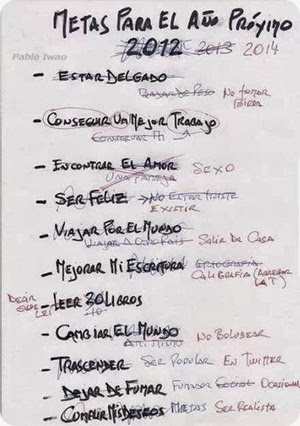 METAS PARA EL AÑO PRÓXIMO
Pablo Iwao
2012 2013 2014
- ESTAR DELGADO
BAJAR DE PESO NO TOMAR
- CONSEGUIR UN MEJOR TRABAJO
CONSERVAR MI
- ENCONTRAR EL AMOR SEXO
UNA PAREJA
- SER FELIZ → NO ESTAR TRISTE
EXISTIR
- VIAJAR POR EL MUNDO
VIAJAR A OTRO PAIS SALIR DE CASA
- MEJORAR MI ESCRITURA ORTOGRAFIA
CALIGRAFIA (AGREGAR
LA T)
DECIR
QUE
LEI
- LEER 30 LIBROS
10
- CAMBIAR EL MUNDO
A MI MISMO NO BOLUDEAR
- TRASCENDER SER POPULAR EN TWITTER
- DEJAR DE FUMAR FUMADOR SOCIAL OCASIONAL
- CUMPLIR MIS DESEOS METAS SER REALISTA